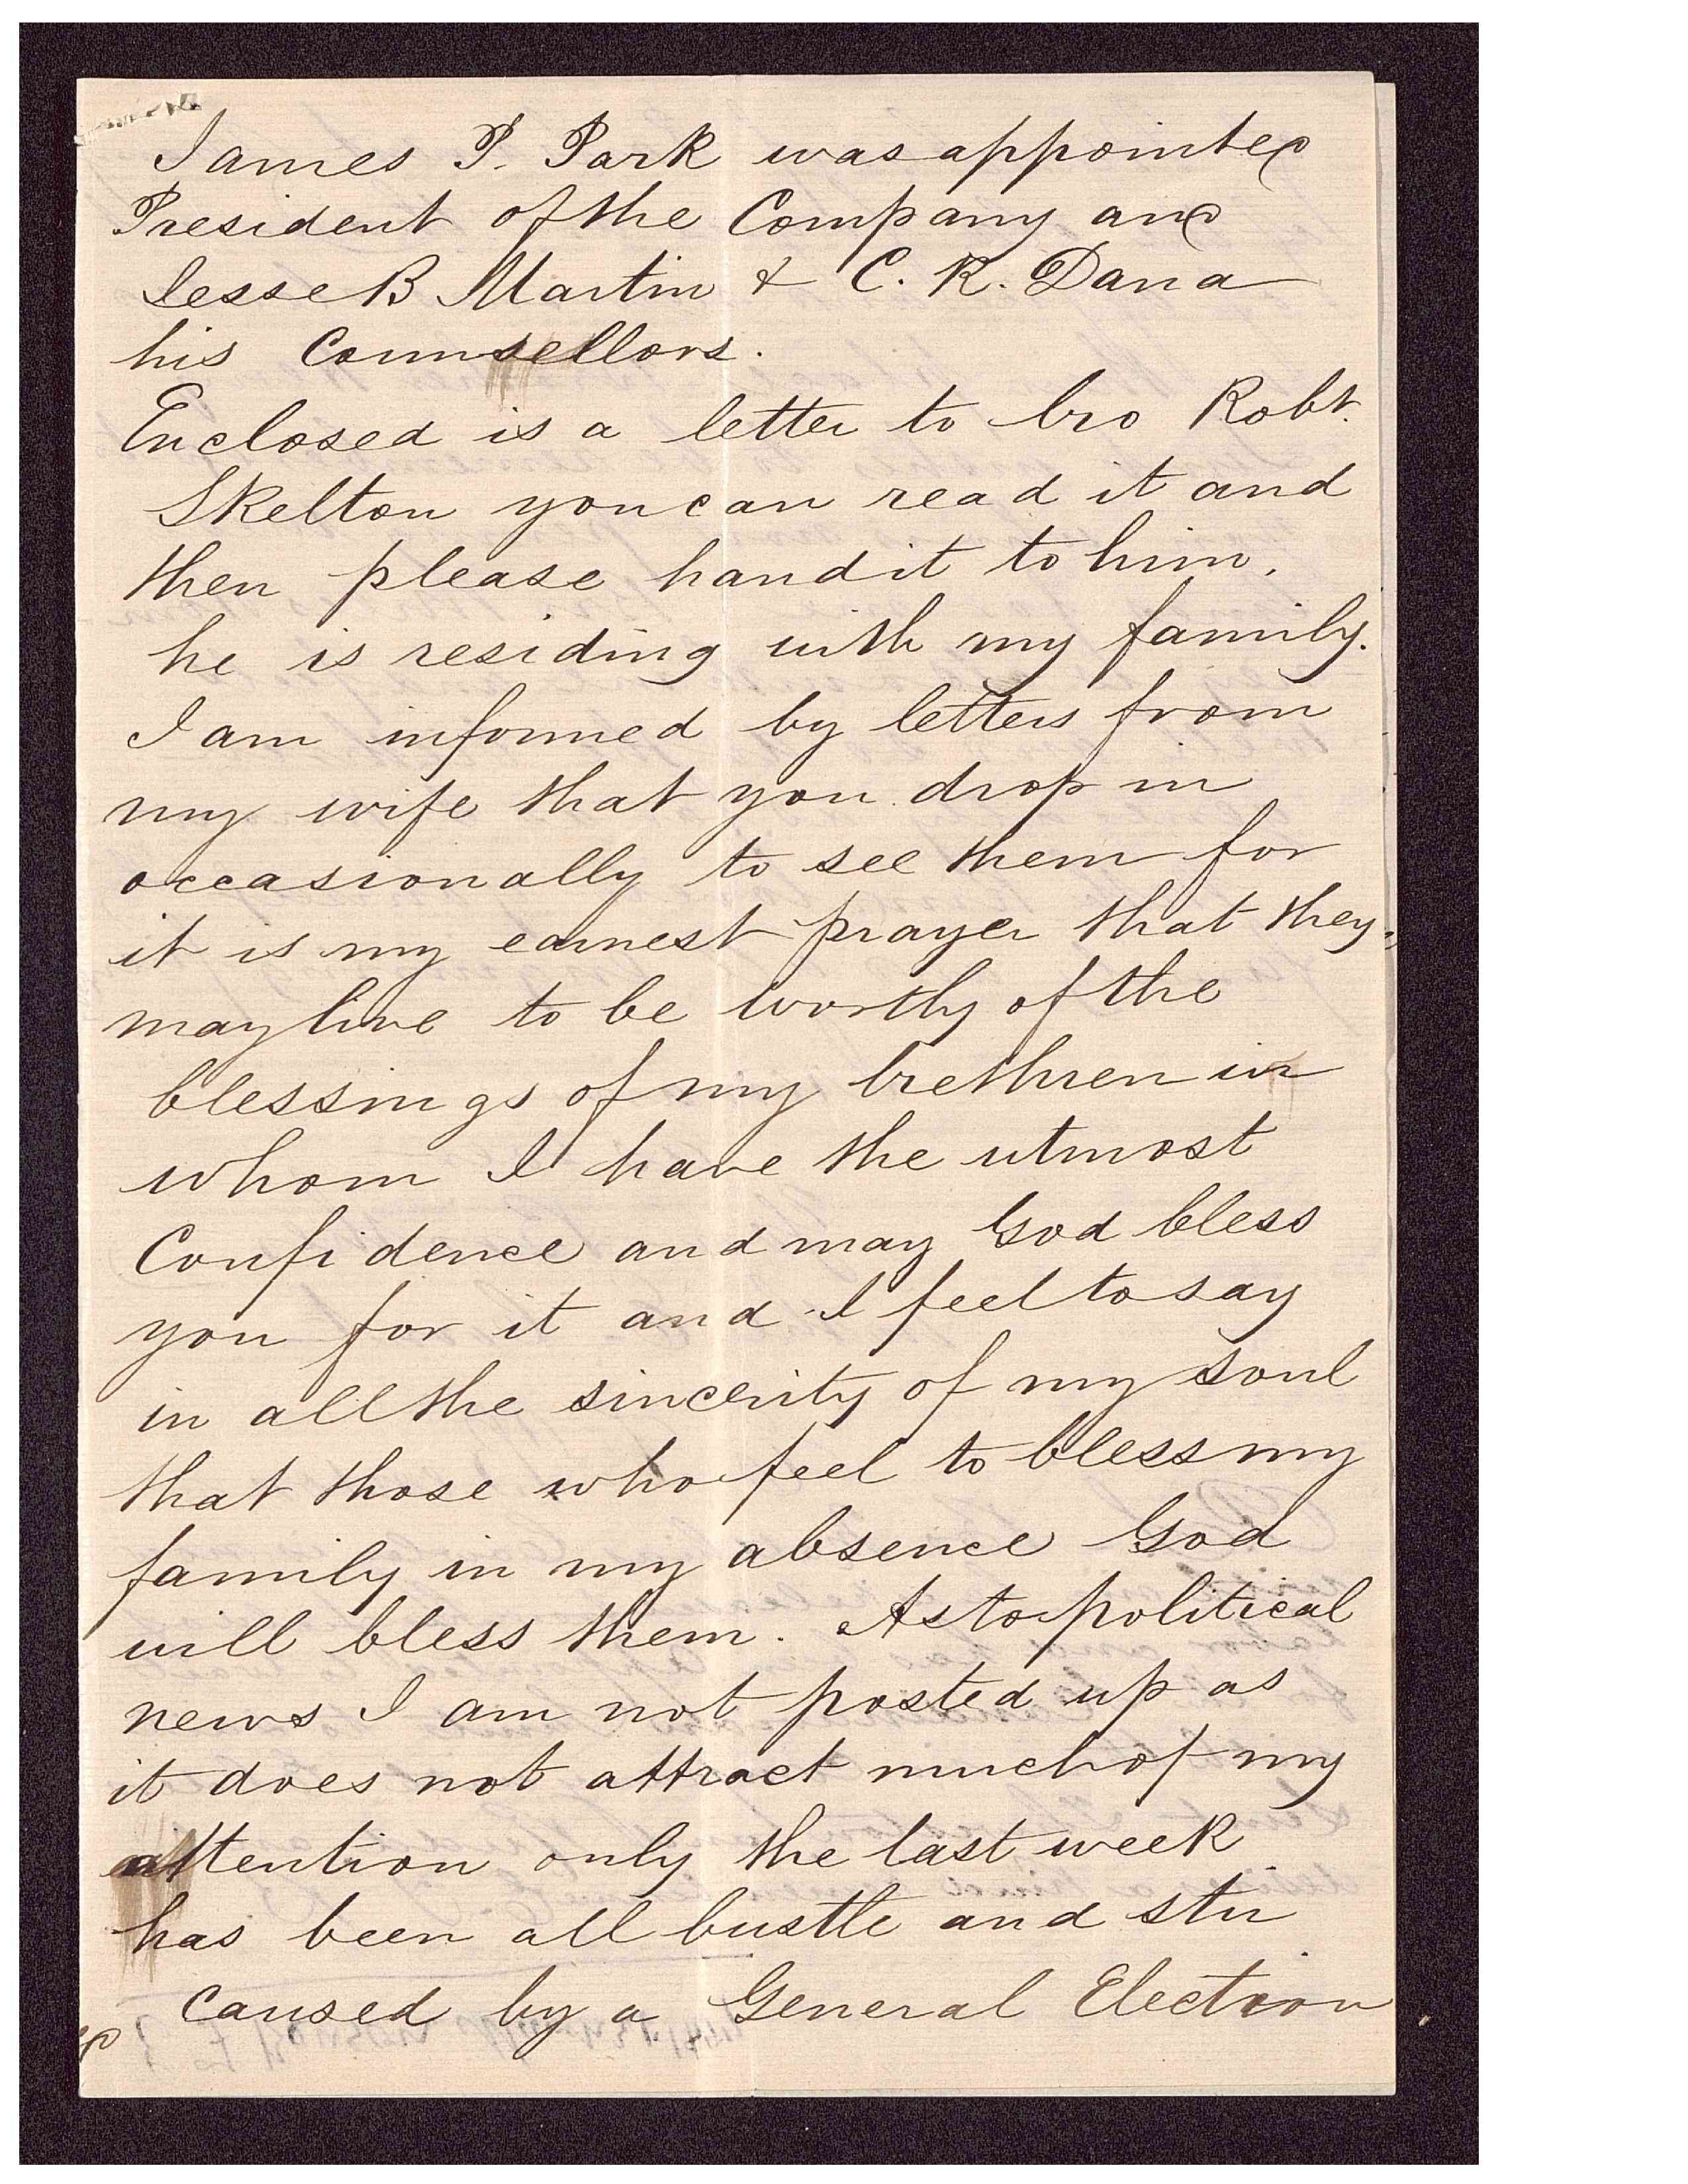 James P. Park was appointed
President of the Company and
Jesse B Martin & C. R. Dana
his Counsellors.
Enclosed is a letter to bro Robt.
Skelton you can read it and
then please hand it to him,
he is residing with my family.
I am informed by letters from
my wife that you drop in
occasionally to see them for
it is my earnest prayer that they
may live to be worthy of the
blessings of my brethren in
whom I have the utmost
Confidence and may God bless
you for it and I feel to say
in all the sincerity of my soul
that those who feel to bless my
family in my absence God
will bless them. As to political
news I am not posted up as
it does not attract much of my
attention only the last week
has been all bustle and stir
Caused by a General Election